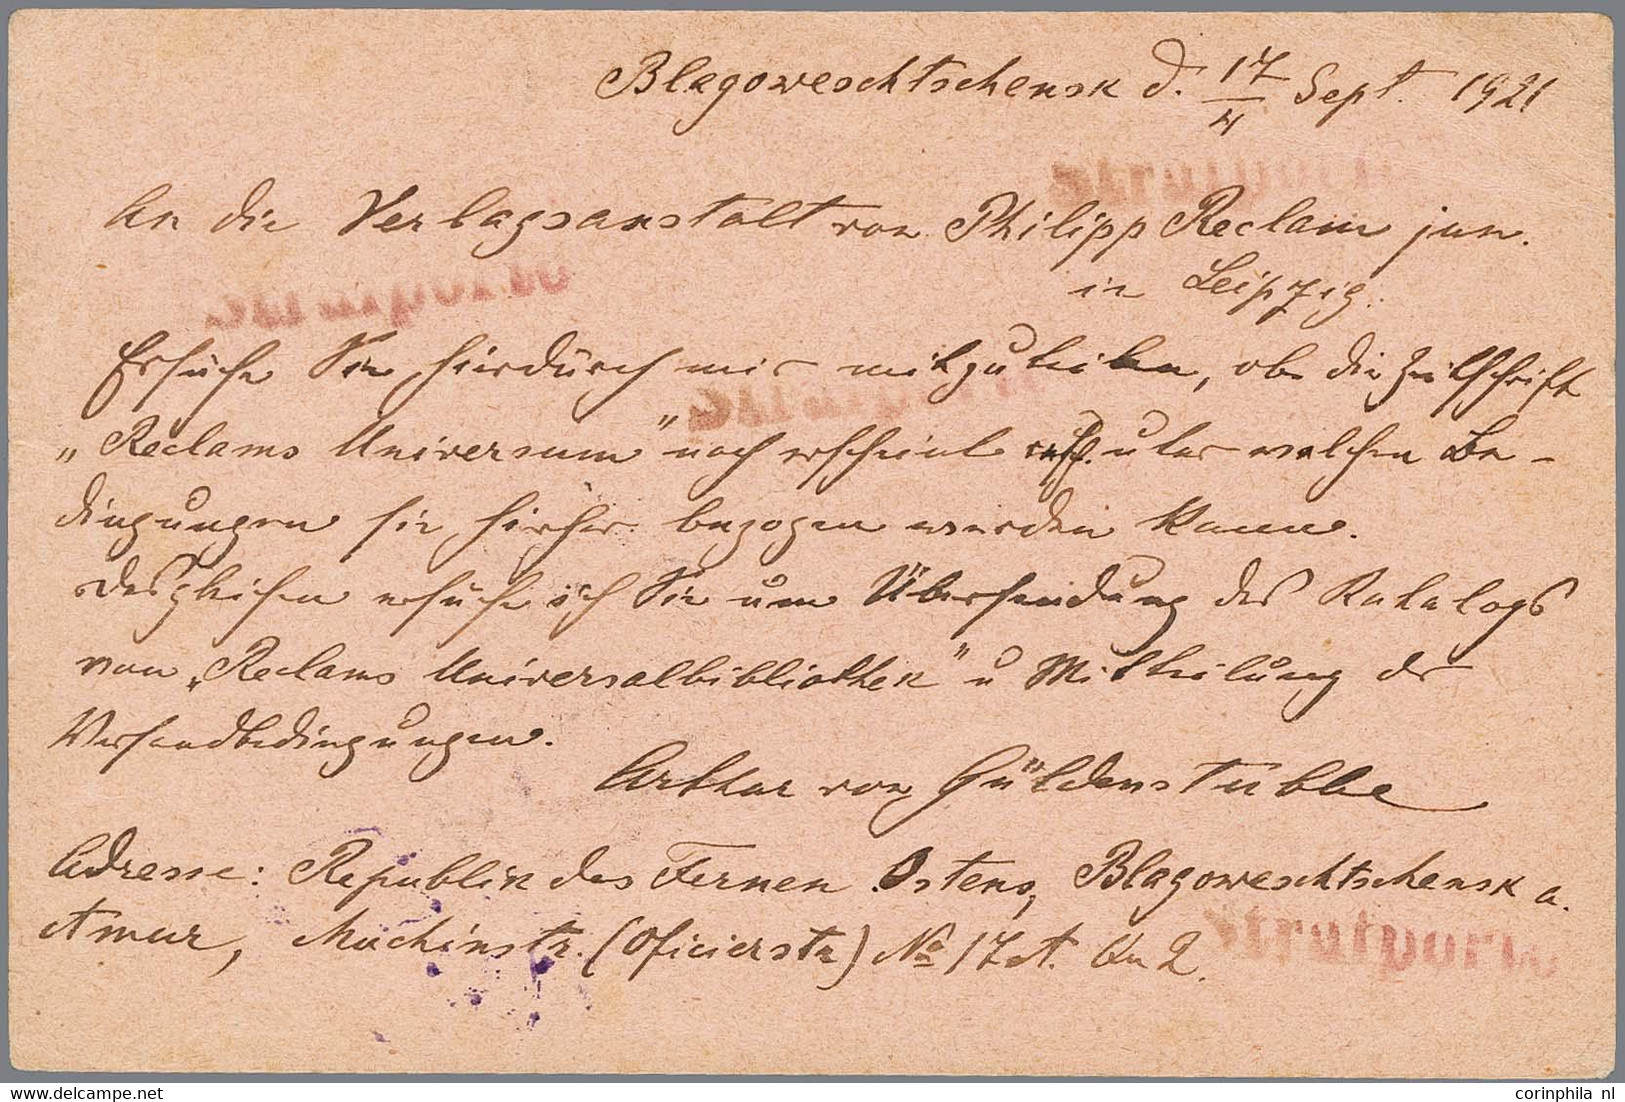 Blagoweschtschensk d. 17/4 Sept. 1921
An die Verlagsanstalt von Philipp Reclam jun.
in Leipzig.
Ersuche Sie hierdurch mir mitzuteilen, ob die Zeitschrift
„Reclams Universum" noch erscheint resp. unter welchen Be-
dingungen sie hierher bezogen werden kann.
Desgleichen ersuche ich Sie um Übersendung des Katalogs
von „Reclams Universalbibliothek" u Mittheilung der
Versandbedingungen.
Arthur von Güldenstubbe
Adresse: Republik des Fernen Ostens, Blagoweschtschensk a.
Amur, (Oficierstr) No 17 A. Qu 2.
corinphila nl